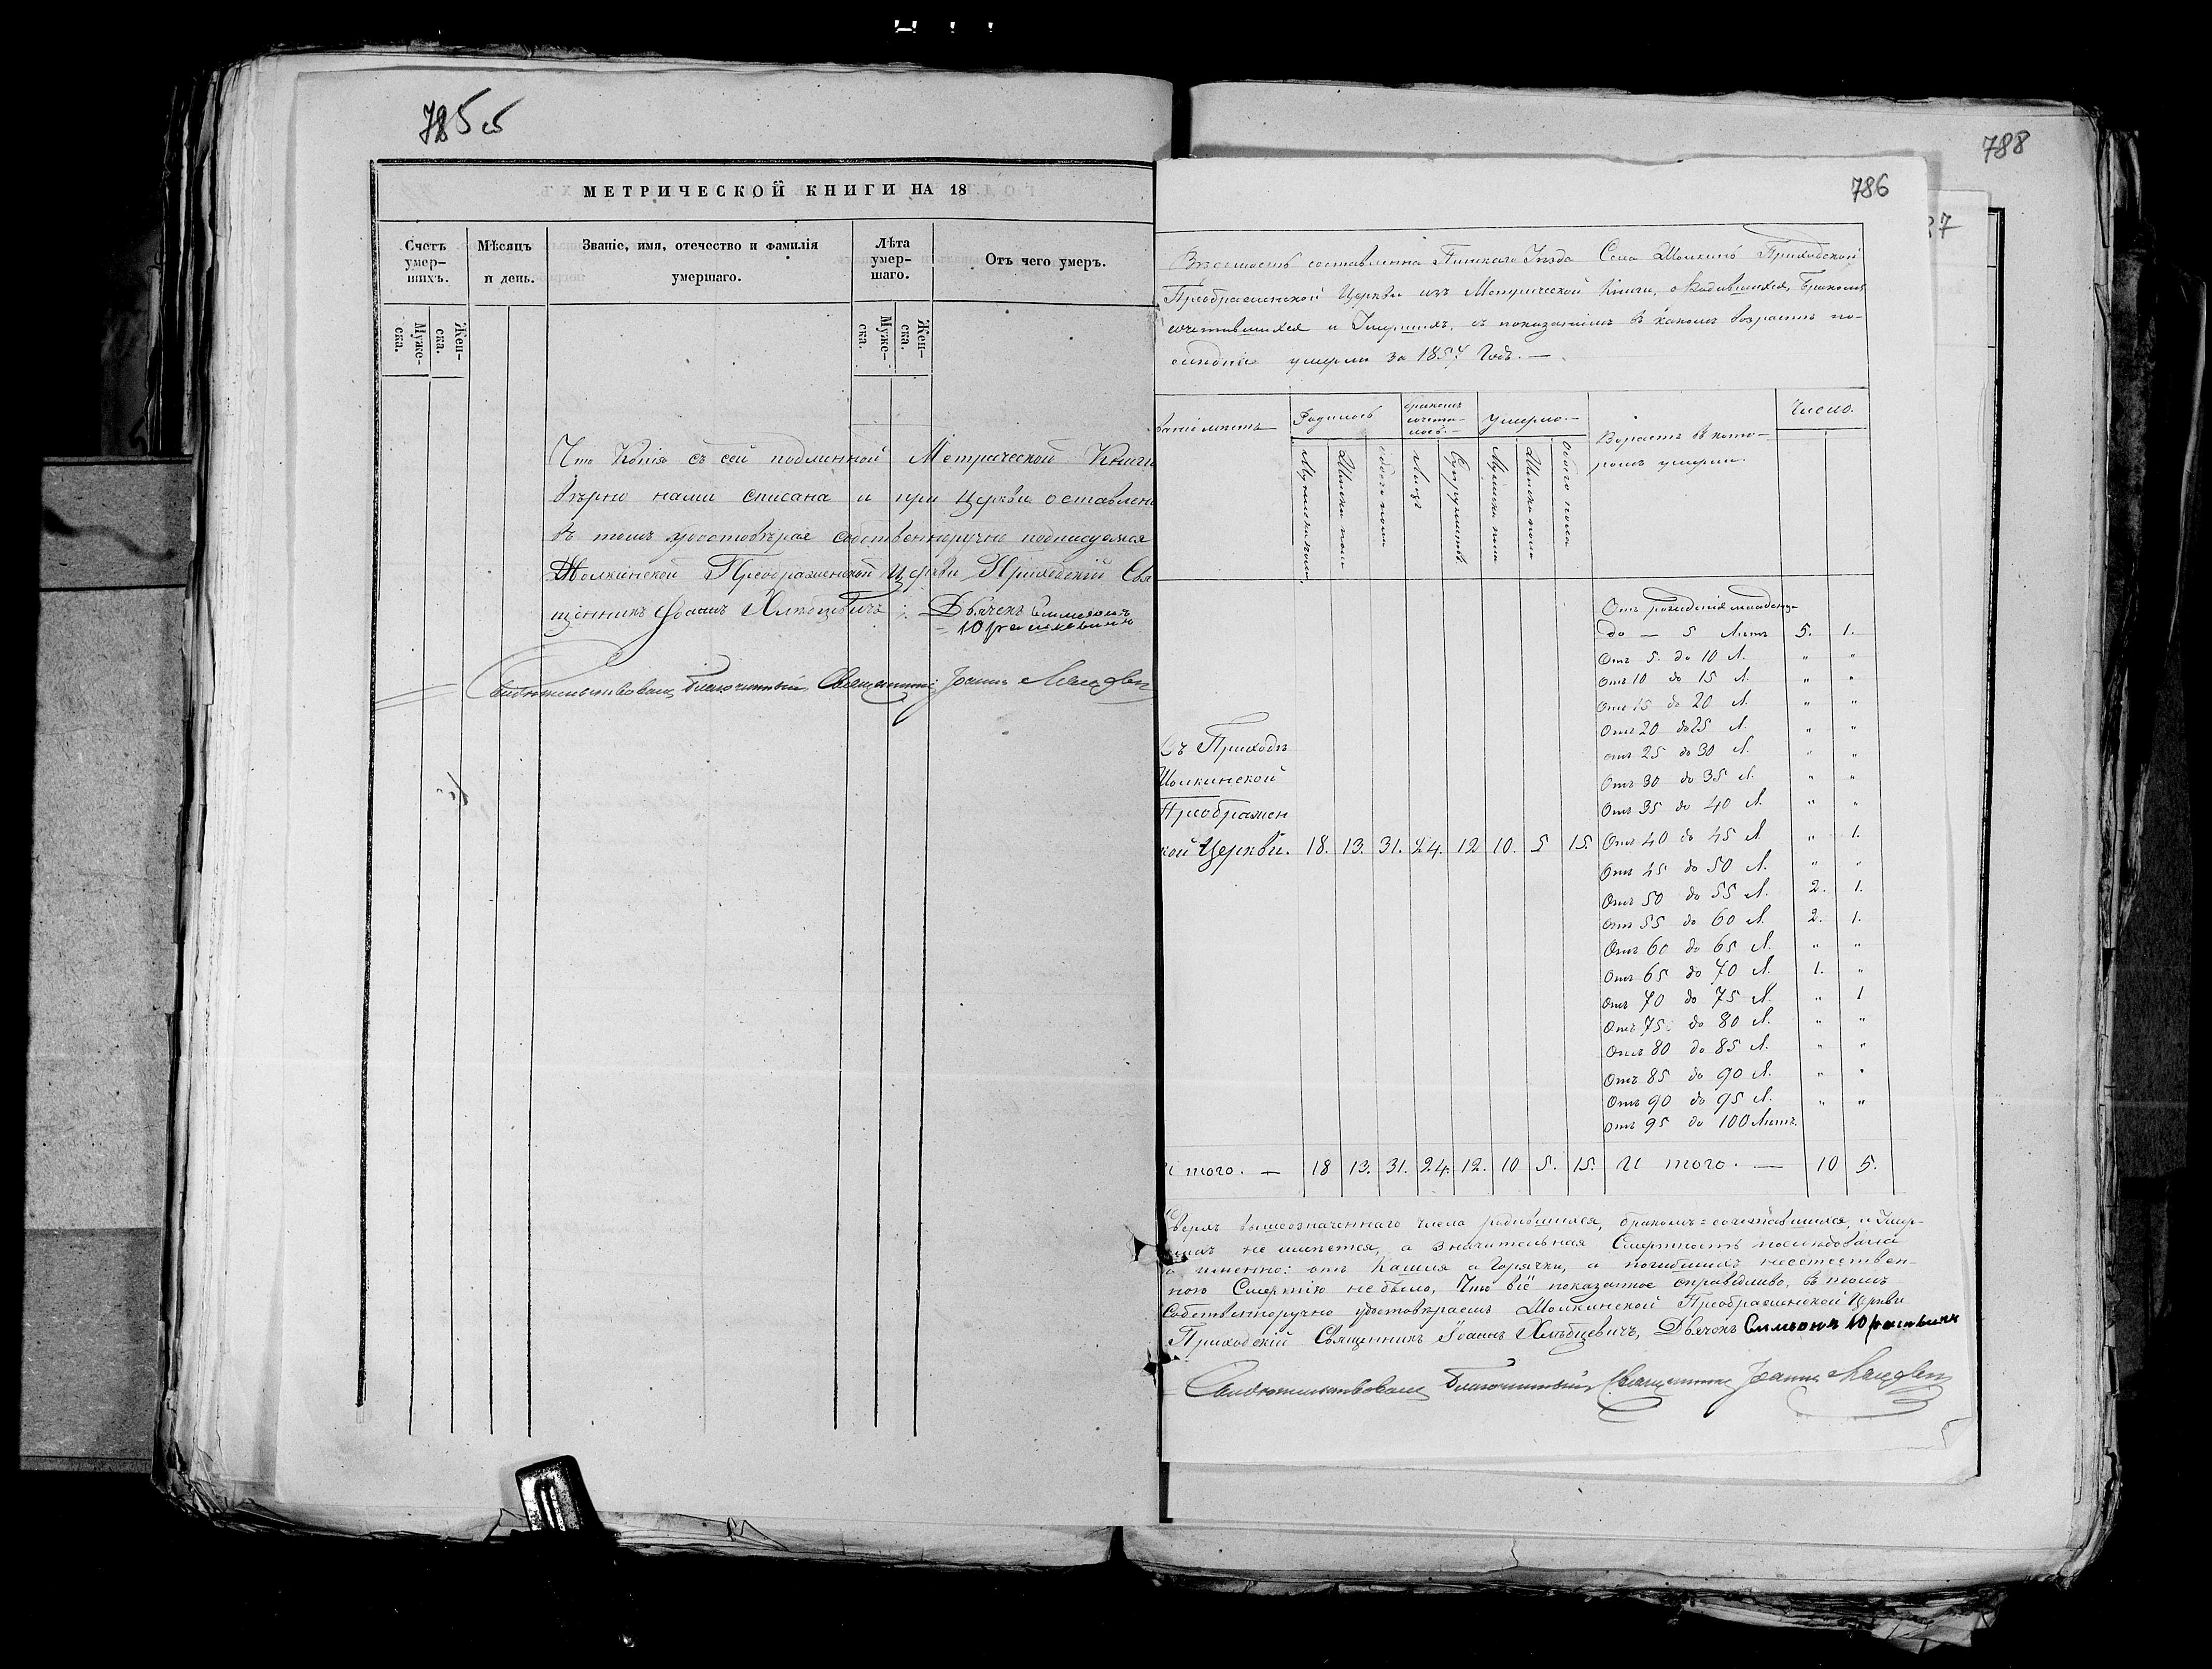 785 об
МЕТРИЧЕСКОЙ КНИГИ НА 18
Счетъ умер-шихъ.
Мѣсяцъ и день.
Званіе, имя, отечество и фамилія умершаго.
Лѣта умер-шаго.
Отъ чего умеръ.
Муже-ска.
Жен-ска.
Муже-ска.
Жен-ска.
Что Копія съ сей подлинной Метрической Книги
вѣрно нами списана и при Церкви оставлена
въ томъ удостовѣряя собственноручно подписуемся
Молкинской Преображенской Церкви Приходскій Свя
щенникъ Іоаннъ Хлѣбцевичъ : Дьячекъ Симеонъ
Юрашкевичъ
Свидѣтельствовалъ Благочинный Священникъ Іоаннъ
788
786
87
Вѣдомость составленна Пинскаго Уѣзда Села Приходской
Преображенской Церкви изъ Метрической Книги, о Родившихся, Бракомъ
сочетавшихся и Умершихъ, съ показаніемъ въ какомъ возрастѣ по-
слѣдніе умерли за 1857 Годъ. —
Родилось
бракомъ сочета-лось. —
умерло. —
Возрастъ въ кото-ромъ умерли.
Число.
Мужеска пола
Женска пола
обоего пола
Лицъ
Супружествъ
Мужеска пола
Женска пола
Обоего пола
Отъ рожденія младенц.
до — 5 Лѣтъ 5. 1.
Отъ 5. до 10 Л. " "
Отъ 10 до 15 Л. " "
Отъ 15 до 20 Л. " "
Отъ 20 до 25 Л. " "
отъ 25 до 30 Л. " "
Отъ 30 до 35 Л. " "
Отъ 35 до 40 Л. " "
Отъ 40 до 45 Л " 1.
Отъ 45 до 50 Л. " "
Отъ 50 до 55 Л. 2. 1.
Отъ 55 до 60 Л. 2. 1.
Отъ 60 до 65 Л. " "
Отъ 65 до 70 Л. 1. "
Отъ 70 до 75 Л. " 1
Отъ 75 до 80 Л. " "
Отъ 80 до 85 Л. " "
Отъ 85 до 90 Л. " "
Отъ 90 до 95 Л. " "
Отъ 95 до 100 Лѣтъ.
Въ Приходѣ
Молкинской
Преображен
кой Церкви. 18. 13. 31. 24. 12 10. 5 15.
И того. — 18 13. 31. 24. 12. 10 5. 15. И того. — 10 5.
Сверхъ вышеозначеннаго числа родившихся, бракомъ=сочетавшихся, и Умер-
шихъ не имѣется, а значительная Смертность послѣдовала
а именно: отъ Кашля и Горячки, а погибшихъ неестествен-
ною Смертію не было, Что всё показанное справедливо, въ томъ
Собственноручно удостовѣряемъ Молкинской Преображенской Церкви
Приходскій Священникъ Іоаннъ Хлѣбцевичъ, Дьячекъ Симеонъ Юрашкевичъ
Свидѣтельствовалъ Благочинный Священникъ Іоаннъ